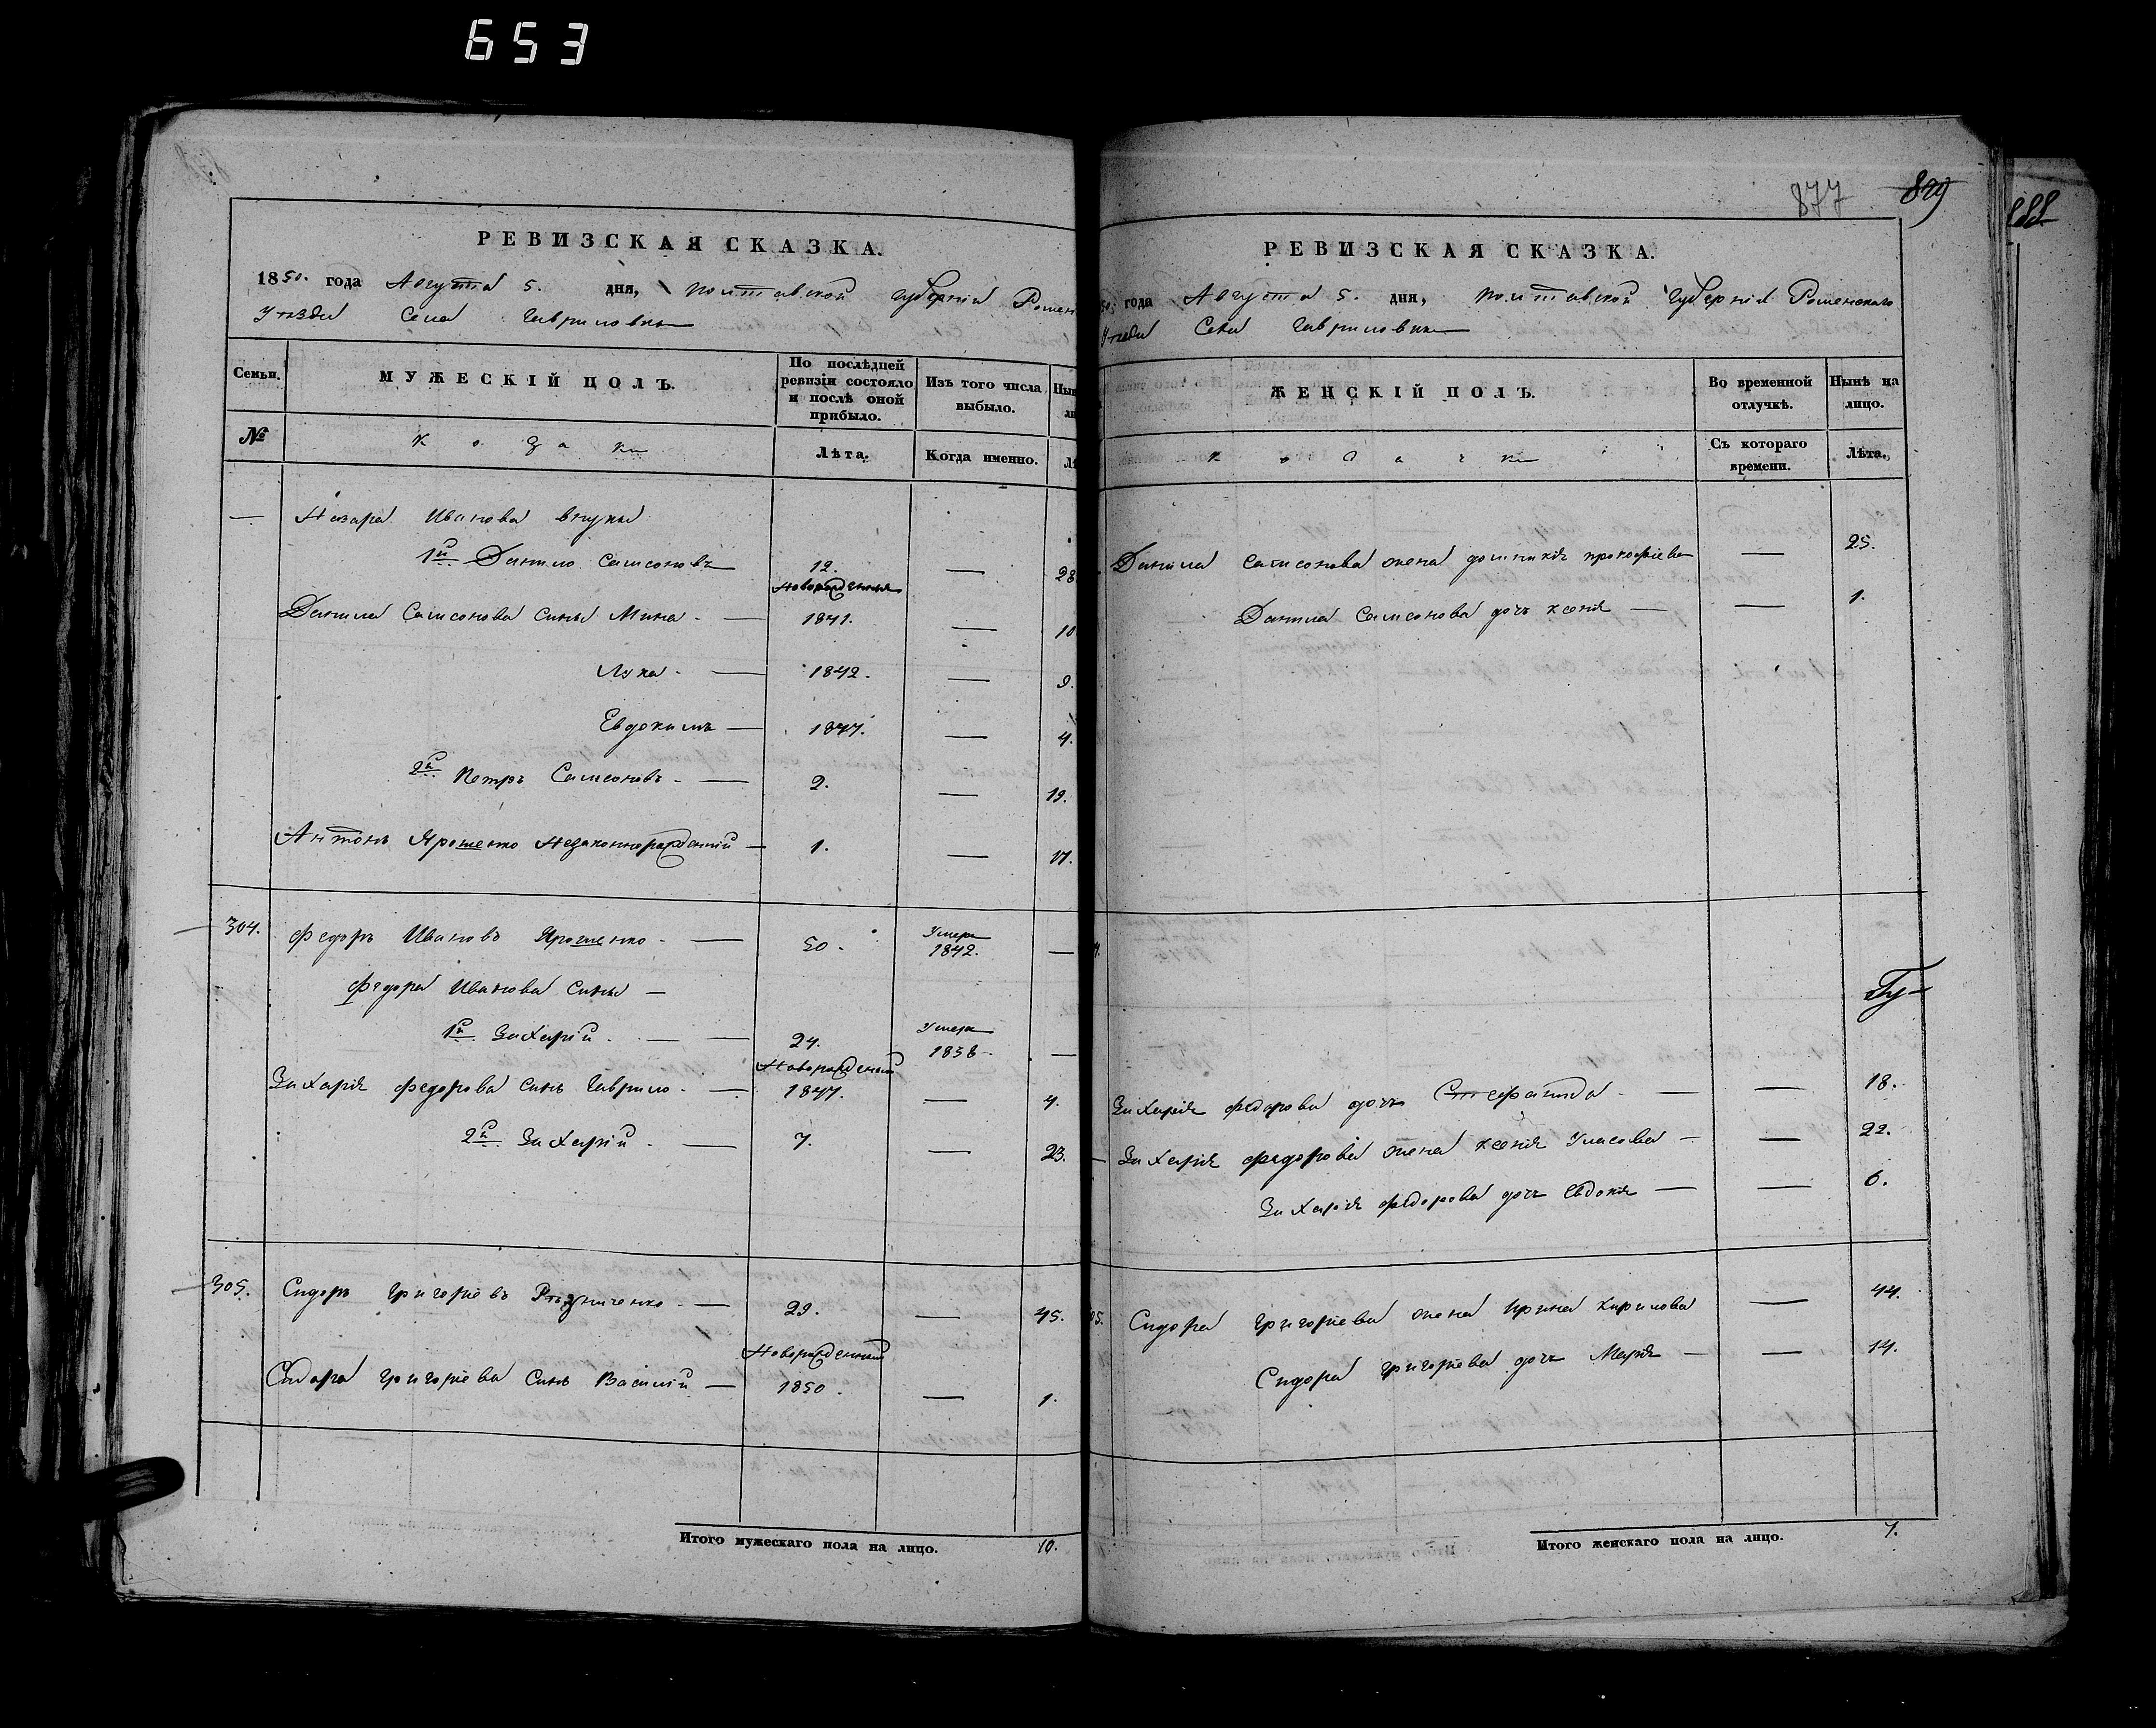 653
РЕВИЗСКАЯ СКАЗКА.
1850. года Августа 5. дня, Полтавской губерніи Ромен
Уѣзда Села Гавриловки
Семьи. МУЖЕСКІЙ ПОЛЪ. По послѣдней ревизіи состояло и послѣ оной прибыло. Изъ того числа выбыло. Нын
№ Козаки Лѣта. Когда именно. Лѣ
— Назара Иванова внуки
1й Данило Самсоновъ 12. — 28
Новорожденныя
Данила Самсонова сины Мина - — 1841. — 10
Лука - — 1842. — 9.
Евдокимъ — 1847. — 4.
2й Петръ Самсоновъ - — 2. — 19.
Антонъ Ярошенко Незаконнорожденній — 1. — 17.
304. Федоръ Ивановъ Ярошенко - — 50. Умеръ 1842. —
Федора Иванова сины —
1й Захарій - — 24. Умеръ 1838. —
Новорожденный
Захарія Федорова синъ Гаврило - — 1847. — 4.
2й Захарій - — 7. — 23.
305. Сидоръ Григоріевъ Рѣзниченко - — 29. — 45.
Новорожденный
Сидора Григоріева синъ Василій — 1850. — 1.
Итого мужескаго пола на лицо. 10.
877 879
РЕВИЗСКАЯ СКАЗКА.
50. года Августа 5. дня, Полтавской губерніи Роменскаго
Уѣзда Села Гавриловки
ЖЕНСКІЙ ПОЛЪ. Во временной отлучкѣ. Нынѣ на лицо.
Козачки Съ котораго времени. Лѣта.
Данила Самсонова жена Домникія Прокофіева — 25.
Данила Самсонова дочь Ксенія — — 1.
Захарія Федорова дочь Стефанида - — — 18.
Захарія Федорова жена Ксенія Уласова — — 22.
Захарія Федорова дочь Евдокія — — 6.
05. Сидора Григоріева жена Ирина Кирилова — 44.
Сидора Григоріева дочь Марія — — 14.
Итого женскаго пола на лицо. 7.